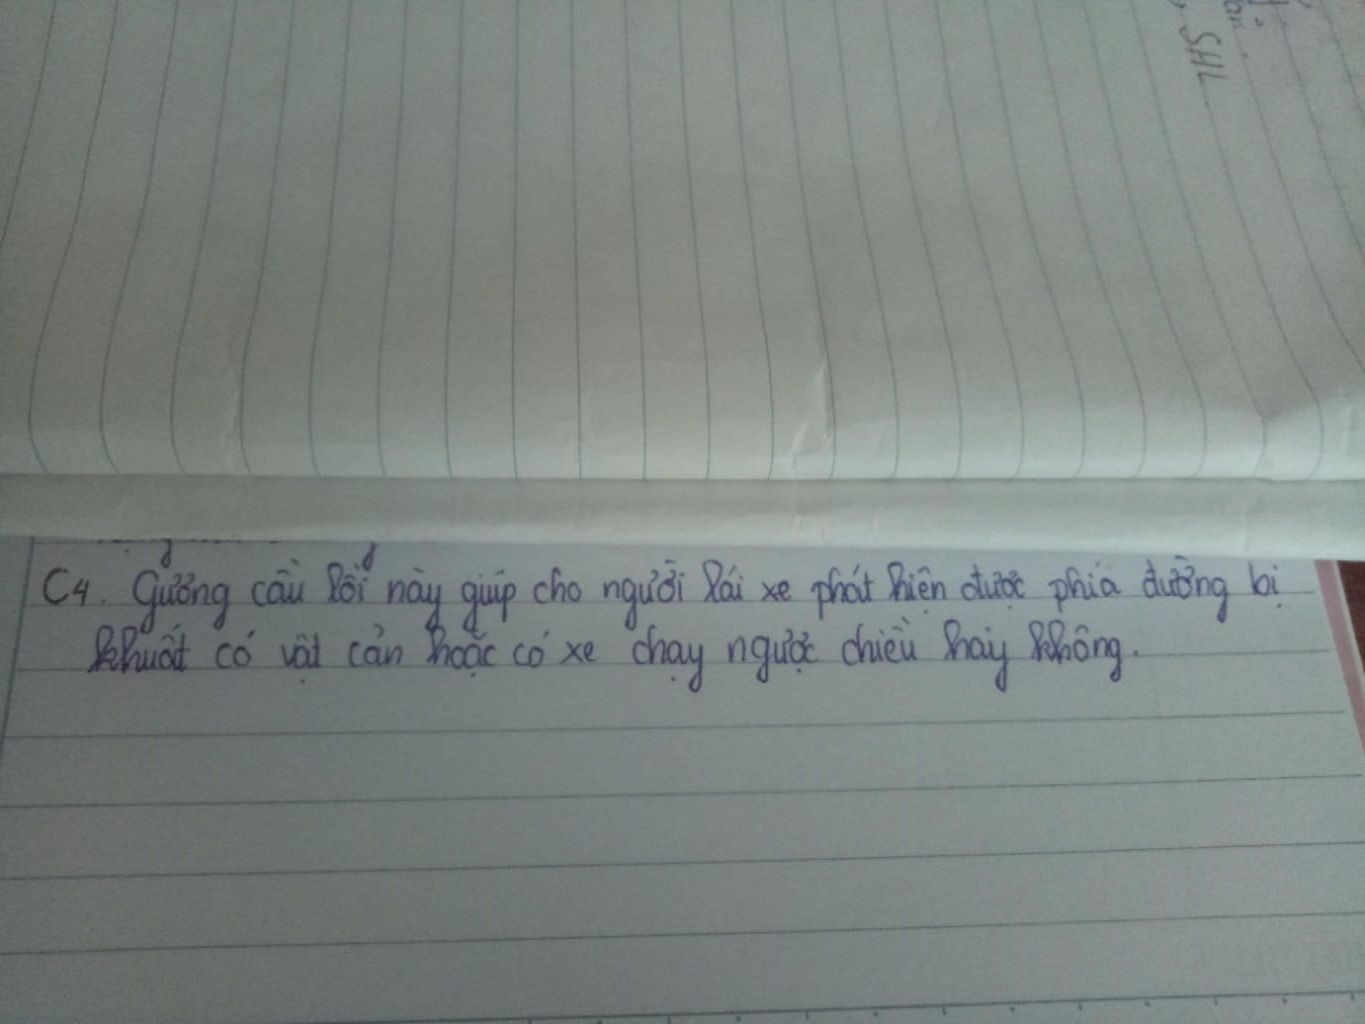 SHL
C4. Gương cầu lồi này giúp cho người lái xe phát hiện được phía đường bị
khuất có vật cản hoặc có xe chạy ngược chiều hay không.